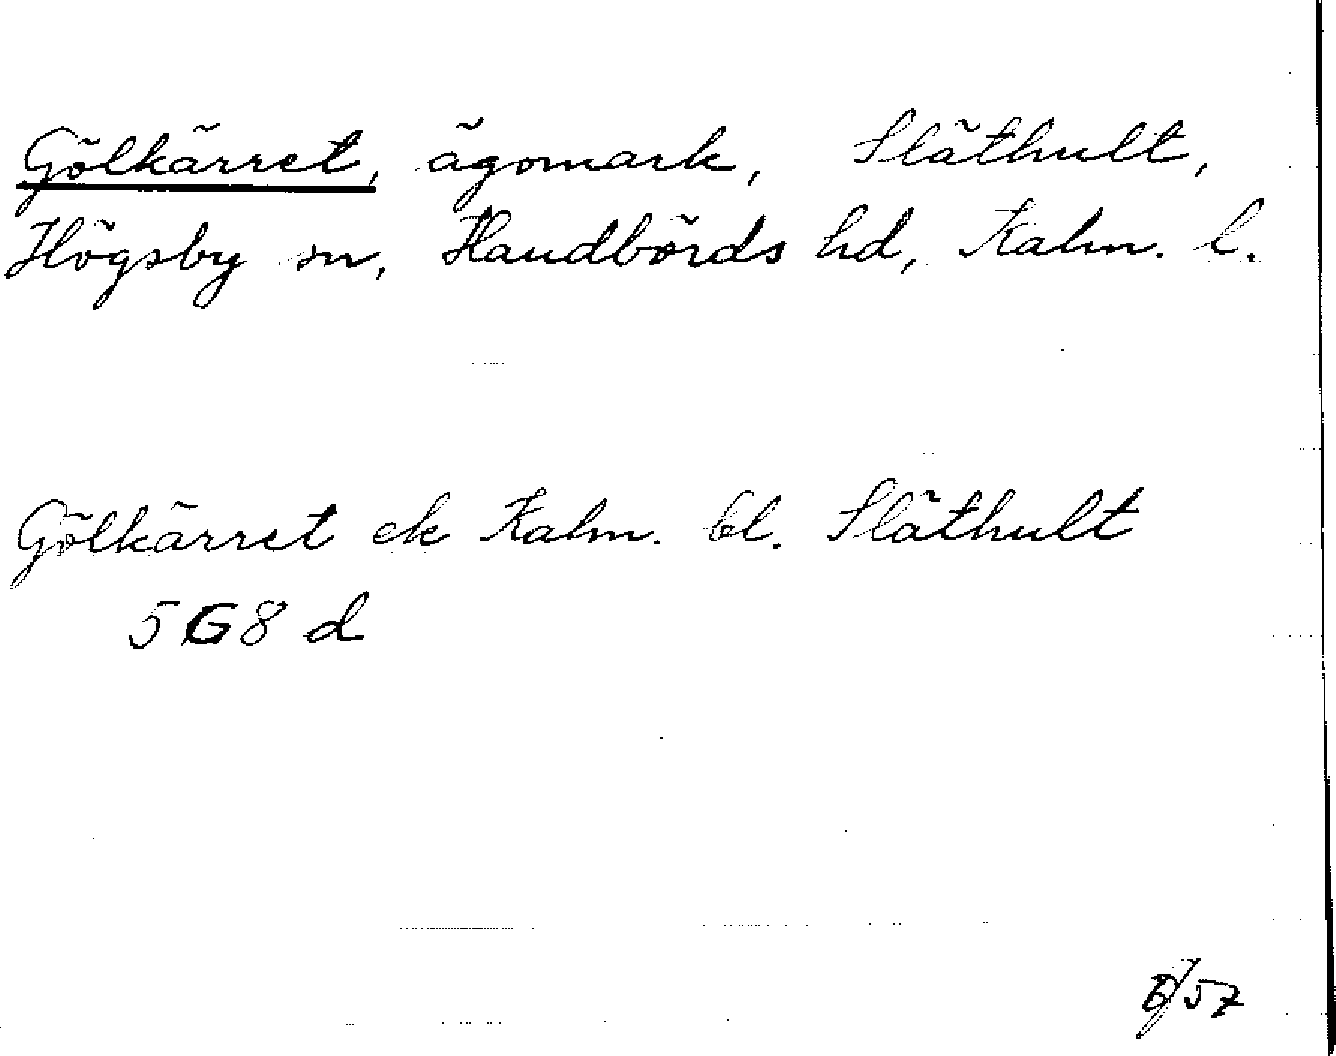 Gölkärret, ägomark, Släthult,
Högsby sn, Handbörds hd, Kalm. l.
Gölkärret ek Kalm. bl. Släthult
5 G 8 d
/57